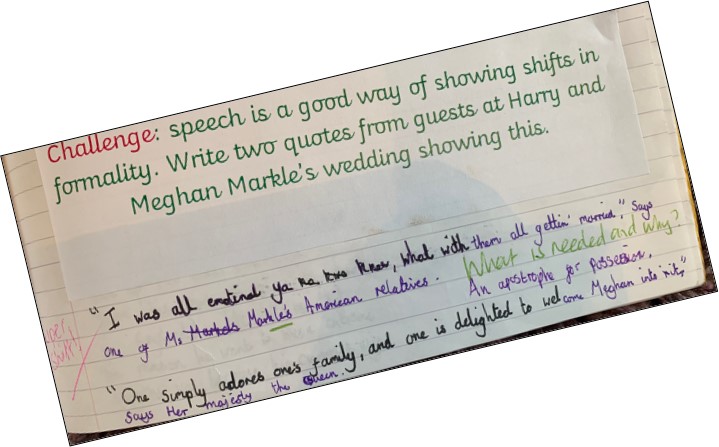 Challenge: speech is a good way of showing shifts in
formality. Write two quotes from guests at Harry and
Meghan Markle's wedding showing this.
"I was all emotinal ya know, what with them all gettin' married," says
one of Ms Markle's American relatives.
What is needed and why?
An apostrophe for possession.
"One simply adores one's family, and one is delighted to welcome Meghan into it,"
says Her majesty the Queen.